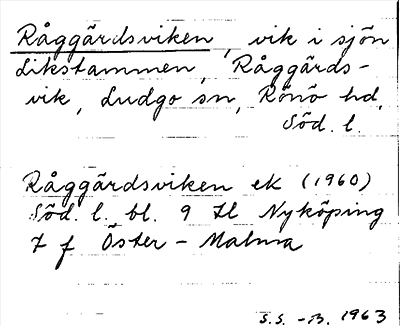 Råggärdsviken, vik i sjön
Likstammen, Råggärds-
vik, Ludgo sn, Rönö hd,
Söd. l.
Råggärdsviken ek (1960)
Söd. l. bl. 9 Il Nyköping
7 f Öster-Malma
S.S. -B. 1963